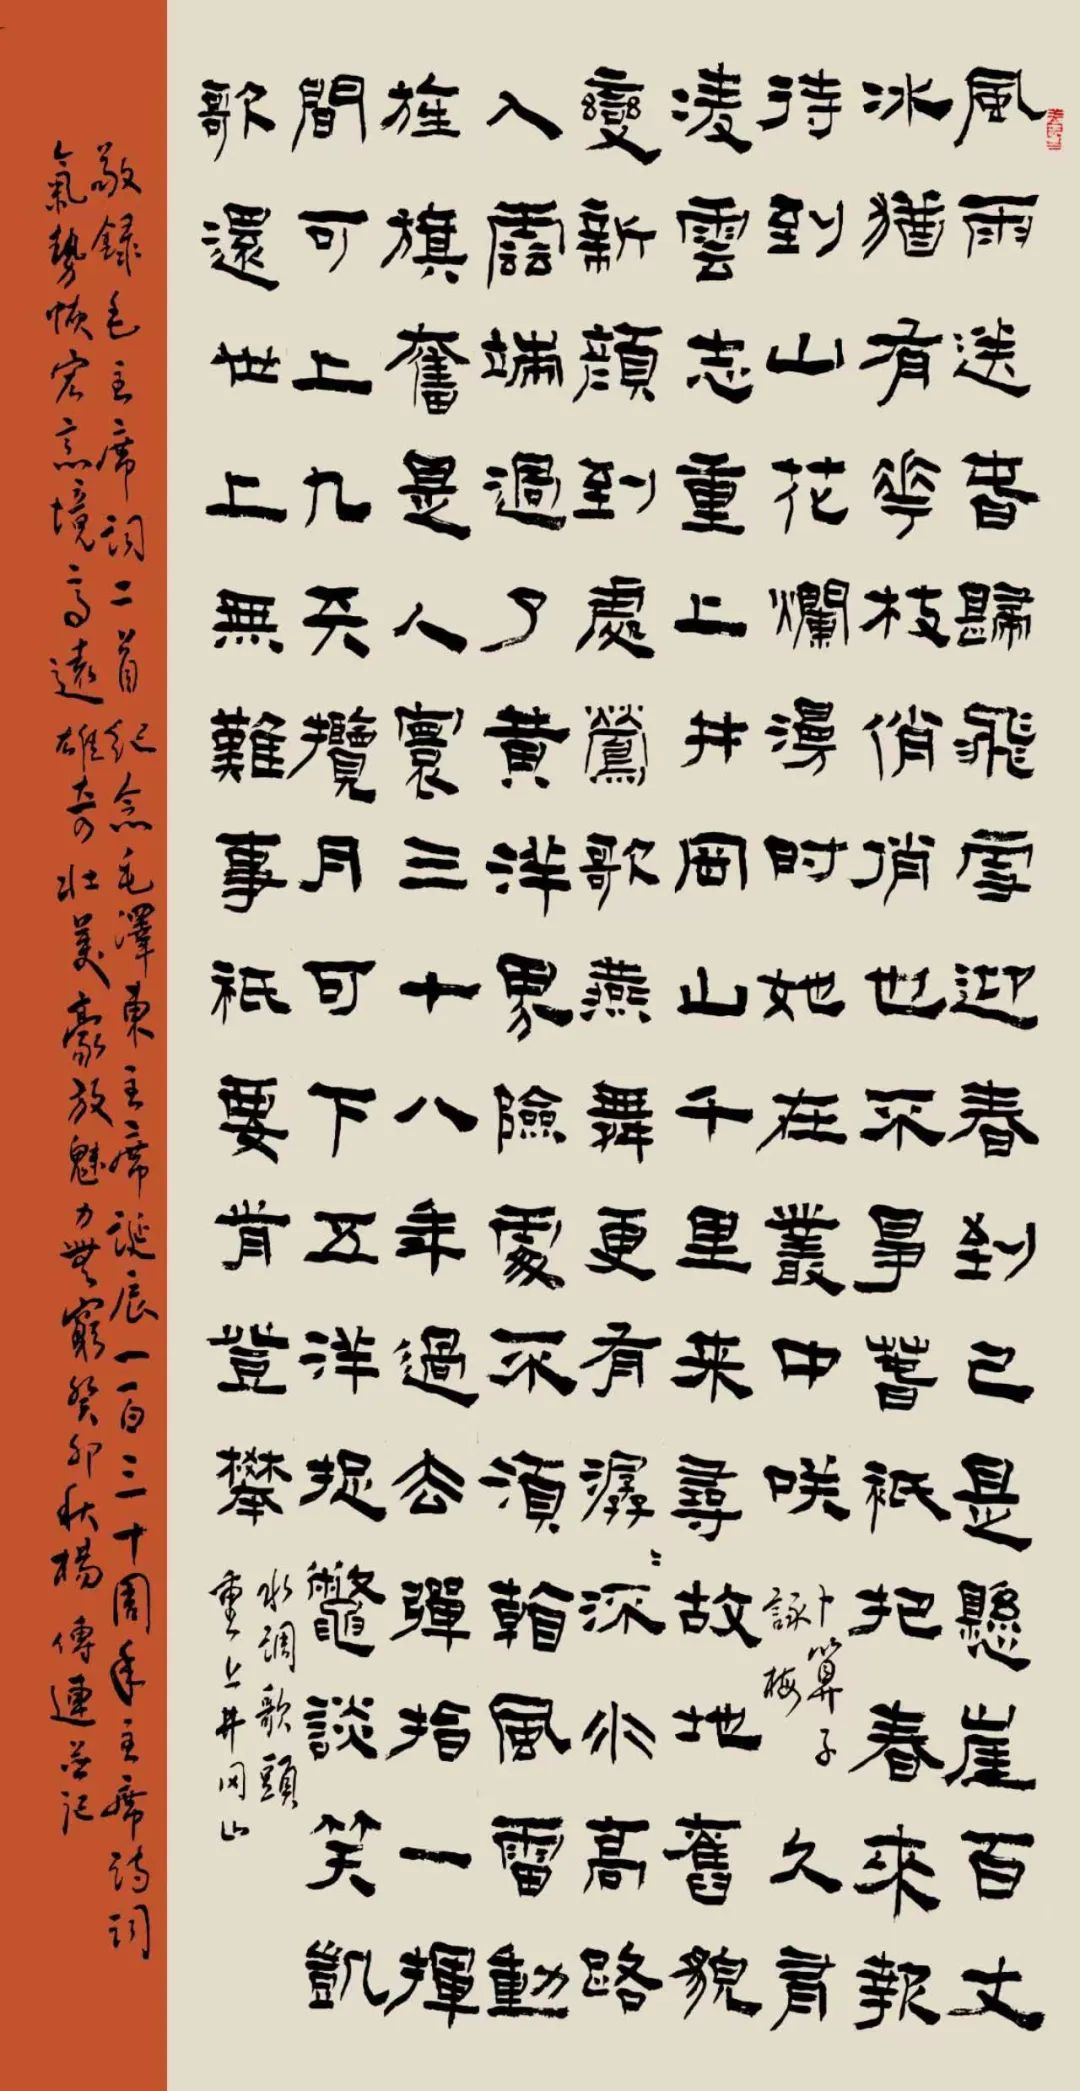 風雨送春歸飛雪迎春到已是懸崖百丈
冰猶有華枝俏俏也不爭春祇把春來報
待到山花爛漫時她在叢中咲
卜算子
詠梅
久有
凌雲志重上井岡山千里来尋故地舊貌
變新顏到處鶯歌燕舞更有潺〻流水高路
入雲端過了黃洋界險處不須看風雷動
旌旗奮是人寰三十八年過去彈指一揮
間可上九天攬月可下五洋捉鱉談笑凱
歌還世上無難事祇要肯登攀
水調歌頭
重上井岡山
敬錄毛主席詞二首紀念毛澤東主席誕辰一百三十周年主席詩詞
氣勢恢宏意境高遠雄奇壯美豪放魅力無窮癸卯秋楊傳連並記